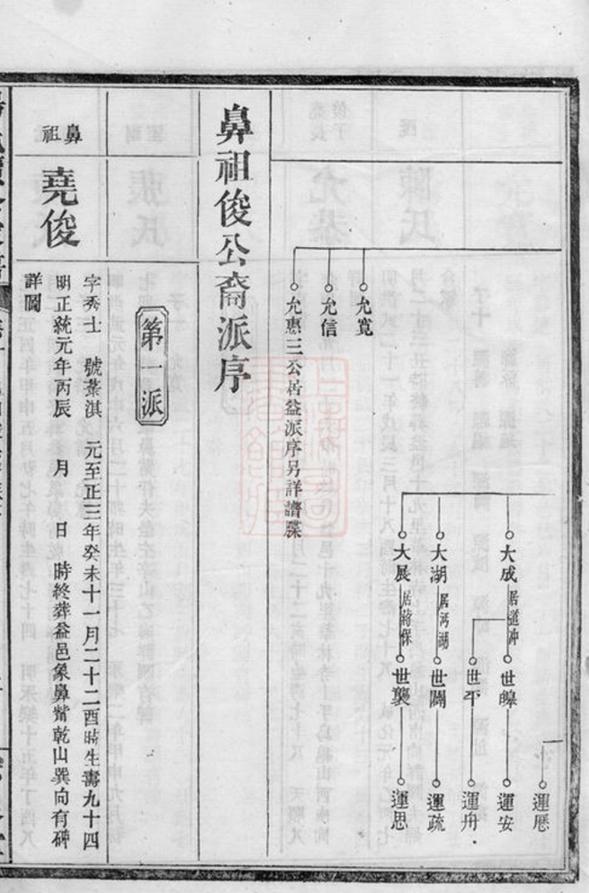 運歷
大成 居道冲 世皥 運安
世平 運舟
大湖 居河湖 世闊 運疏
大展 居蔣保 世襲 運思
允寬
允信
允惠三公居益派序另詳譜牒
鼻祖俊公裔派序
第一派
鼻祖
堯俊
字秀士 號葉淇 元至正三年癸未十一月二十二酉時生壽九十四
明正統元年丙辰 月 日 時終葬益邑象鼻嘴乾山巽向有碑
詳圖